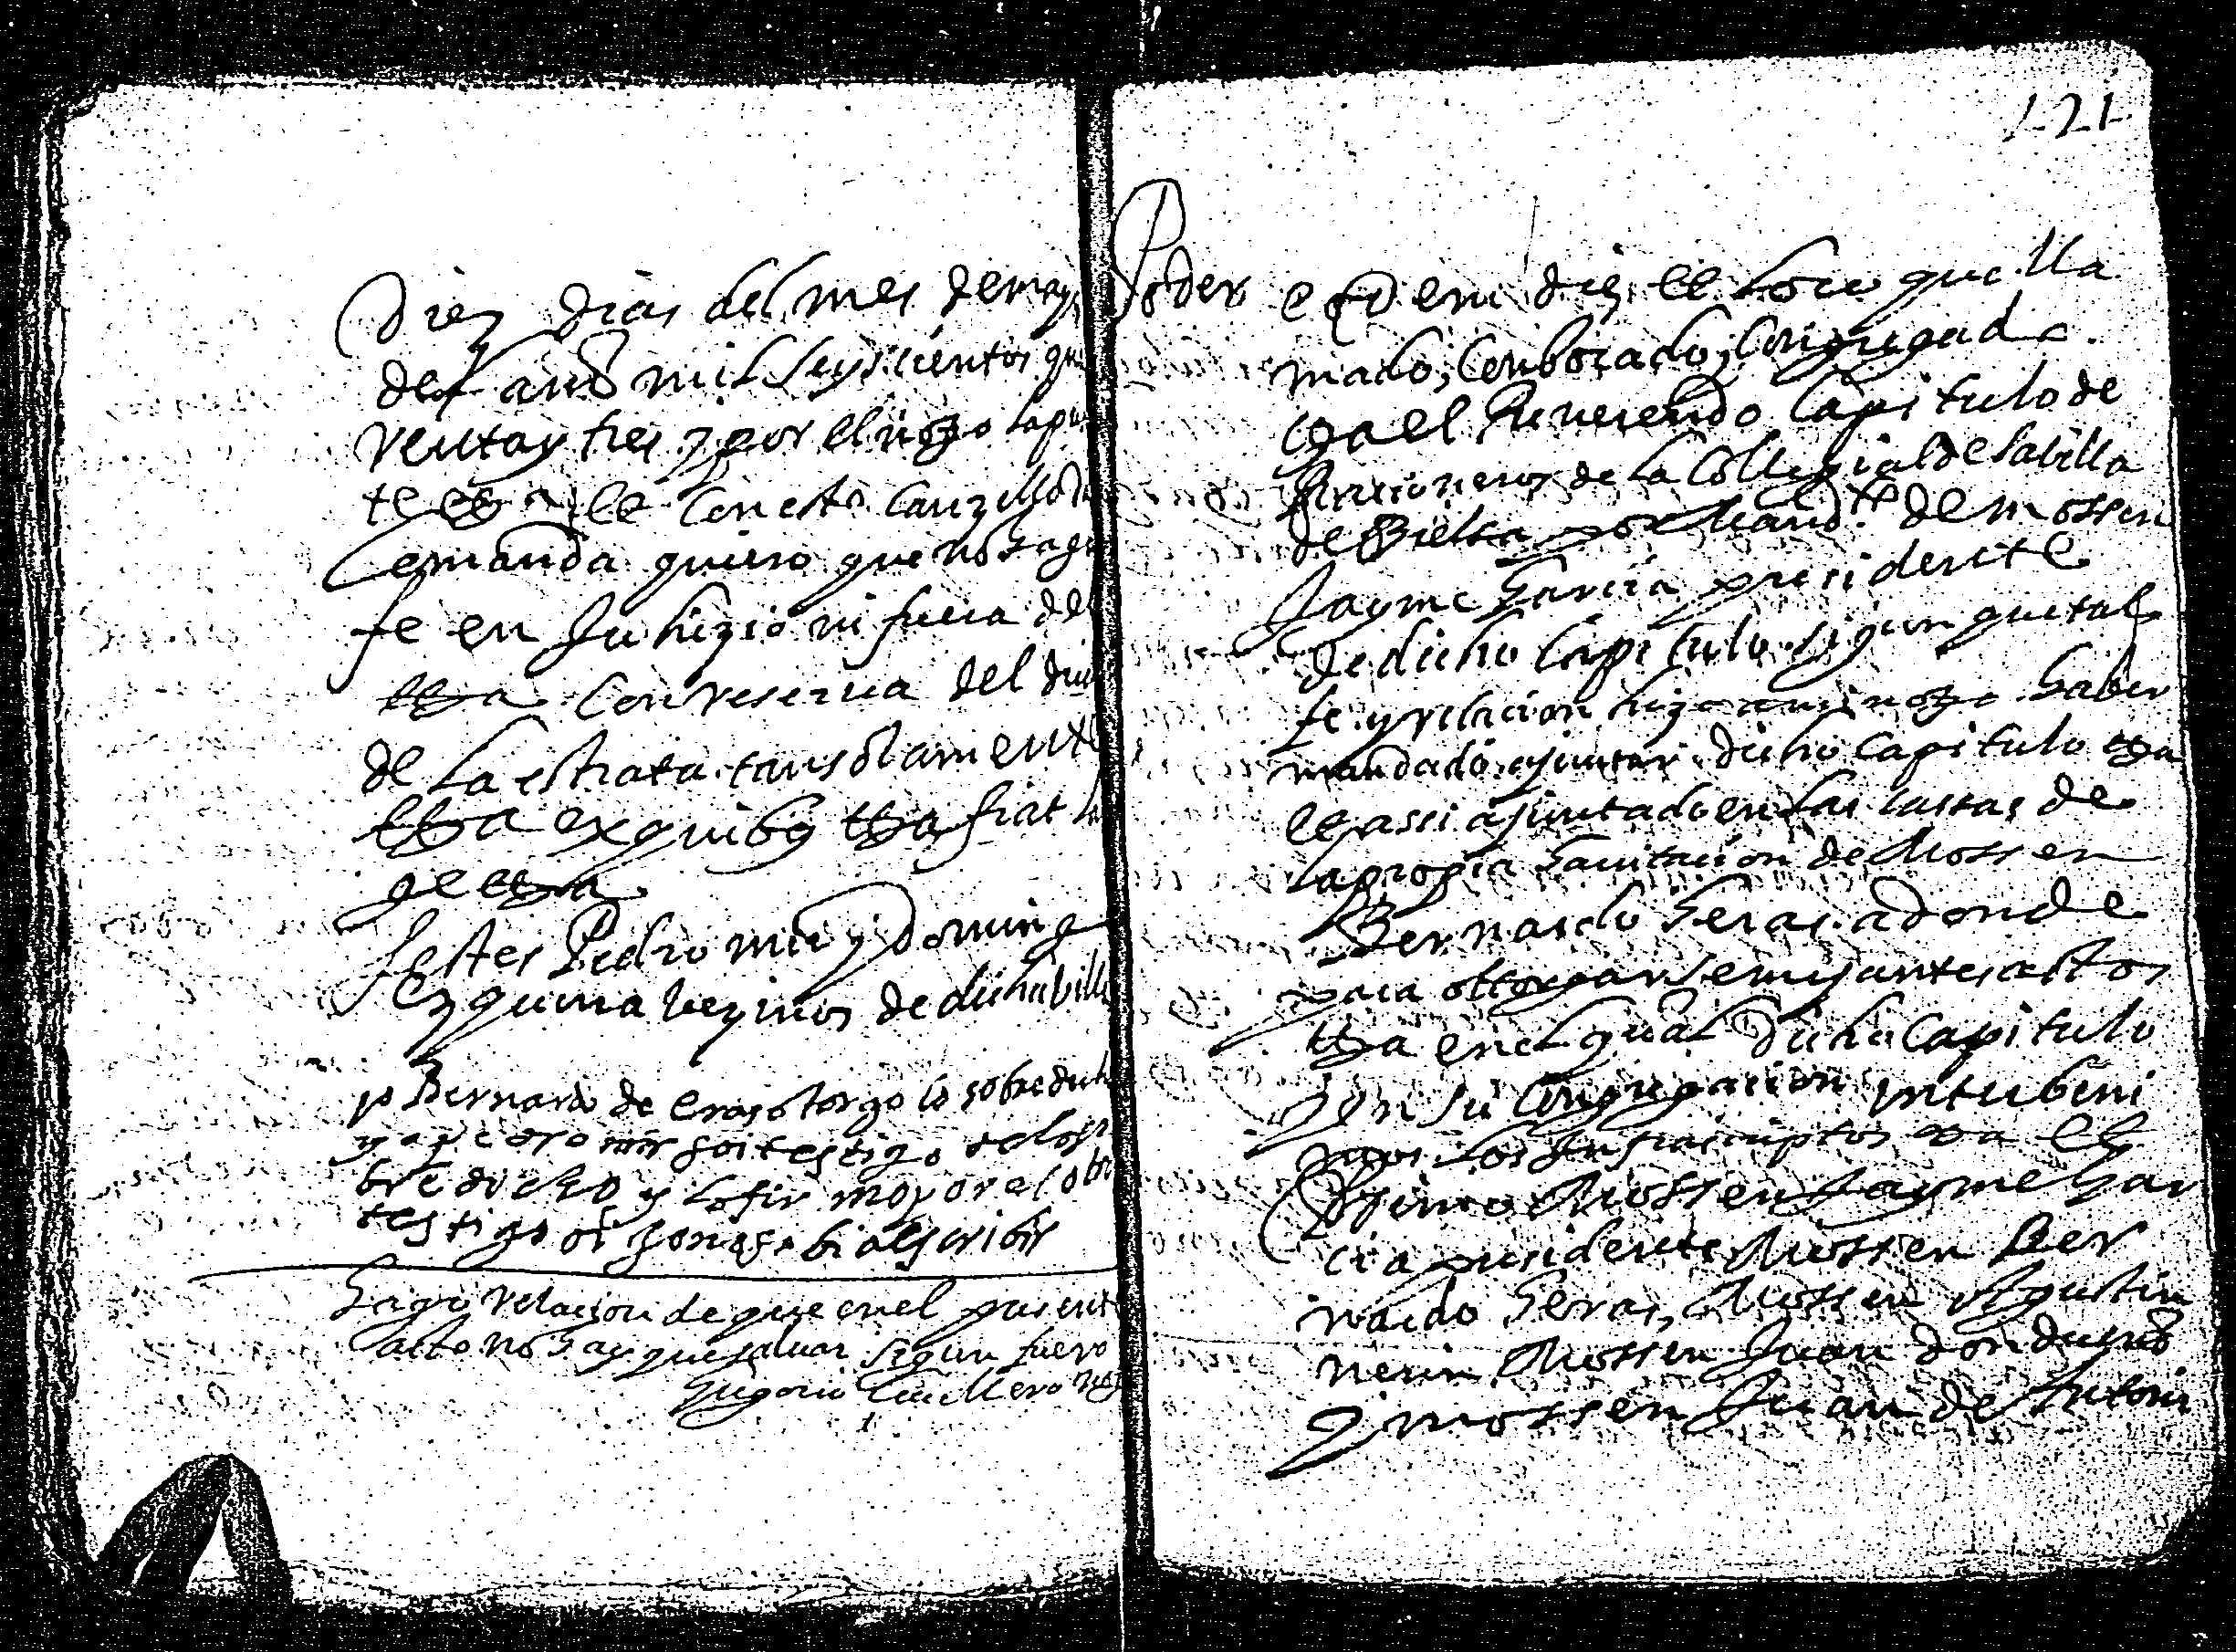 Diez dias del mes de mayo
del año mil seyscientos qua
renta y tres y por el nogo la pre
te et a ille con esta canzellada
Comanda quiero que no haga
fe en Juhizio ni fuera del
ettra con reserua del din
de la estrata tansolamente
ettra ex quibus ettra fiat la
ge ettra
Testes Pedro mur y Doming
Ezquerra vezinos de dicha villa
yo Bernardo de eras otorgo lo sobredich
soi testigo de lo so
bre dicho y lo firmo por el otro
testigo que no sabia escribir
Hago relacion de que en el present
acto no hay que saluar segun fuero
Gregorio Cauellero nog
121
Poder
eodem die et loco que lla
mado, conbocado, congregado
ettra el Reuerendo Capitulo de
Racioneros de la Collegial de la billa
de Bielsa por mand.to de mossen
Jayme Garcia presidente
de dicho Capitulo sigun que tal
fe y relacion hizo a mi nogo haber
mandado ajuntar dicho Capitulo ettra
et assi ajuntado en las cassas de
la propia hauitacion de Mossen
Bernardo heras adonde
para ottorgar semejantes actos
ettra en el qual dicho Capitulo
y en su Congregacion intubeni
mos los Infrascriptos ettra et
Primo Mossen Jayme Gar
cia presidente Mossen Ber
nardo heras, Mossen Agustin
nerin Mossen Juan
y mossen Juan de Antoni